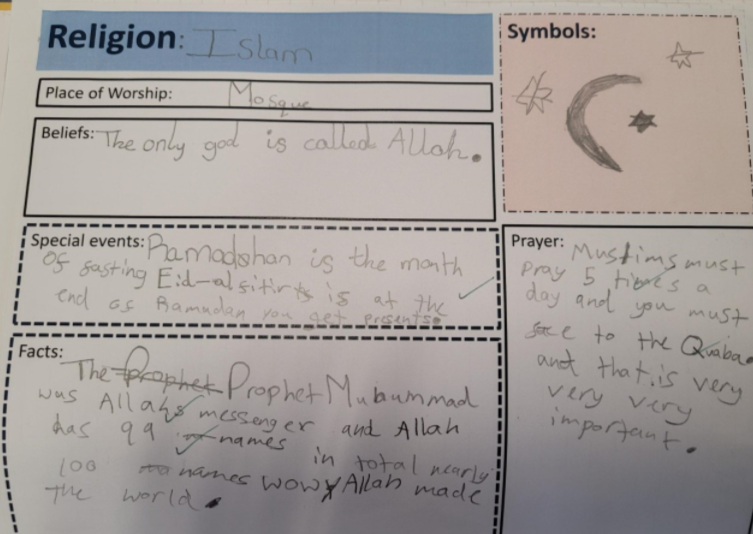 Religion: Islam
Symbols:
Place of Worship: Mosque
Beliefs: The only god is called Allah.
Special events: Ramadahan is the month
of fasting Eid-al fitir is at the
end of Ramadan you get presents.
Prayer: Muslims must
pray 5 times a
day and you must
face to the Quaba
and that is very
very very
important.
Facts: The prophet Prophet Muhummad
was Allahs messenger and Allah
has 99 names
in total nearly
100 names wow Allah made
the world.